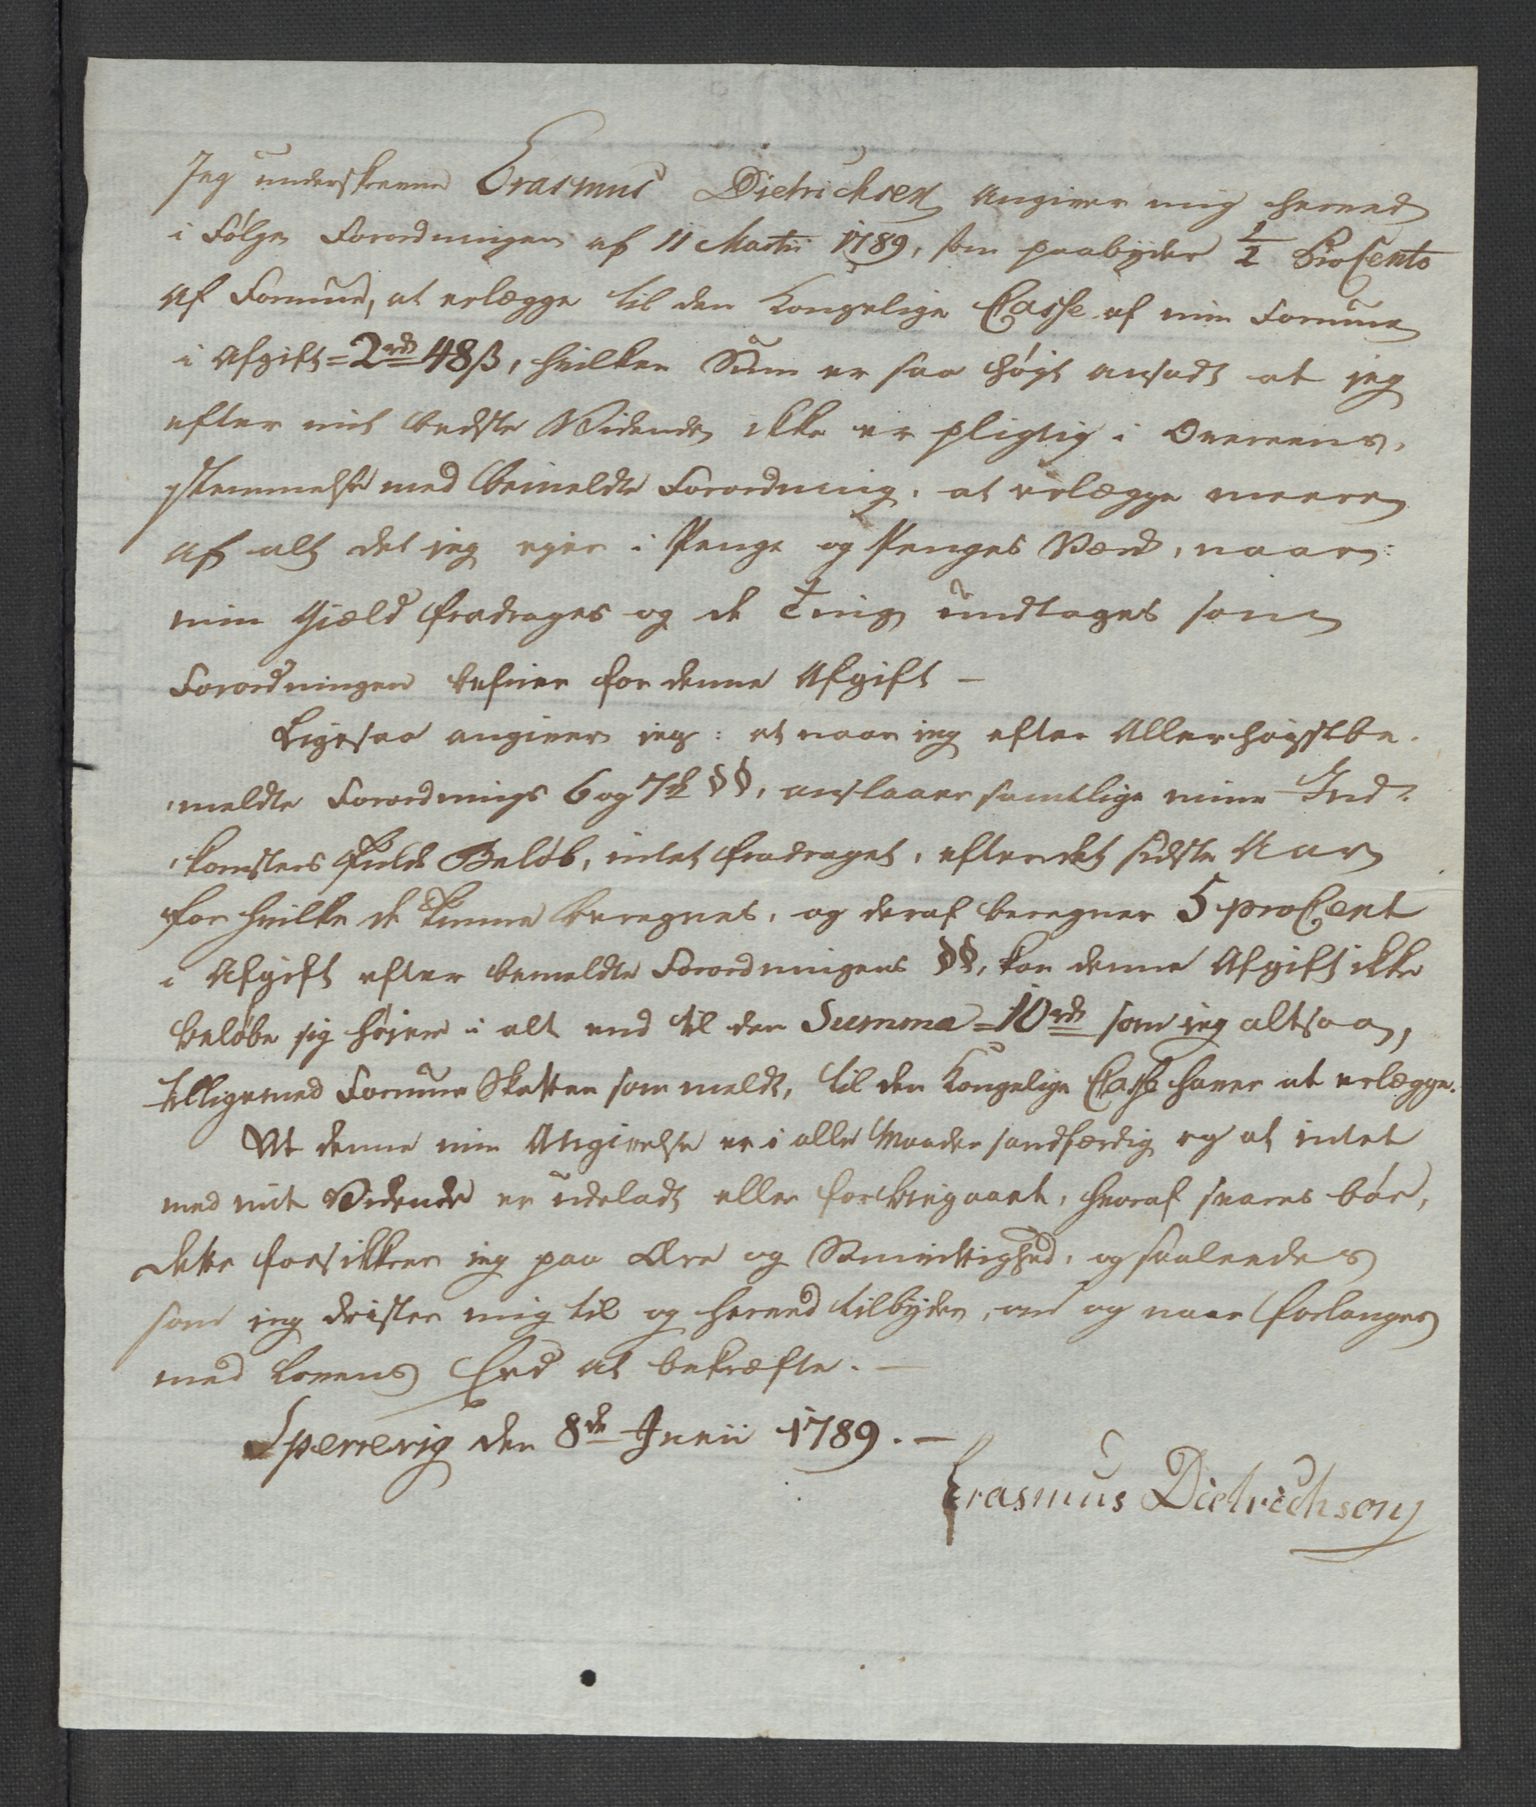 Jeg underskrevne Erasmus Dietrichsen angiver mig herved
i Følge Forordningen af 11 Martii 1789, som paabyder 1/2 ProCento
af Formue, at erlægge til den Kongelige Casse af min Formue
i Afgift = 2rd 48ß, hvilken Sum er saa høyt ansadt at jeg
efter mit bedste Vidende ikke er pligtig i Overeens-
stemmelse med bemeldte Forordning, at erlægge meere
af alt det jeg eyer i Penge og Penges Værd, naar
min Gjæld fradrages og de Ting undtages som
Forordningen befrier for denne Afgift —
Ligesaa angiver jeg: at naar jeg efter Allerhøystbe-
meldte Forordnings 6 og 7de §§, anslaaer samtlige mine Ind-
komsters fulde Beløb, intet fradraget, efter det sidste Aar
for hvilke de kunne beregnes, og deraf beregner 5 proCent
i Afgift efter bemeldte Forordningens §§, kan denne Afgift ikke
beløbe sig høyere i alt end til den Summa = 10rd som jeg altsaa,
tilligemed Formue Skatten som meldt, til den Kongelige Casse haver at erlægge.
At denne min Angivelse er i alle Maader sandfærdig og at intet
med mit Vidende er udeladt eller forbiegaaet, hvoraf svares bør,
dette forsikkrer jeg paa Ære og Samvittighed, og saaleedes
som jeg drister mig til og herved tilbyder, om og naar forlanges
med Lovens Eed at bekræfte. —
Sperrevig den 8de Junii 1789. —
Erasmus Dietrichson